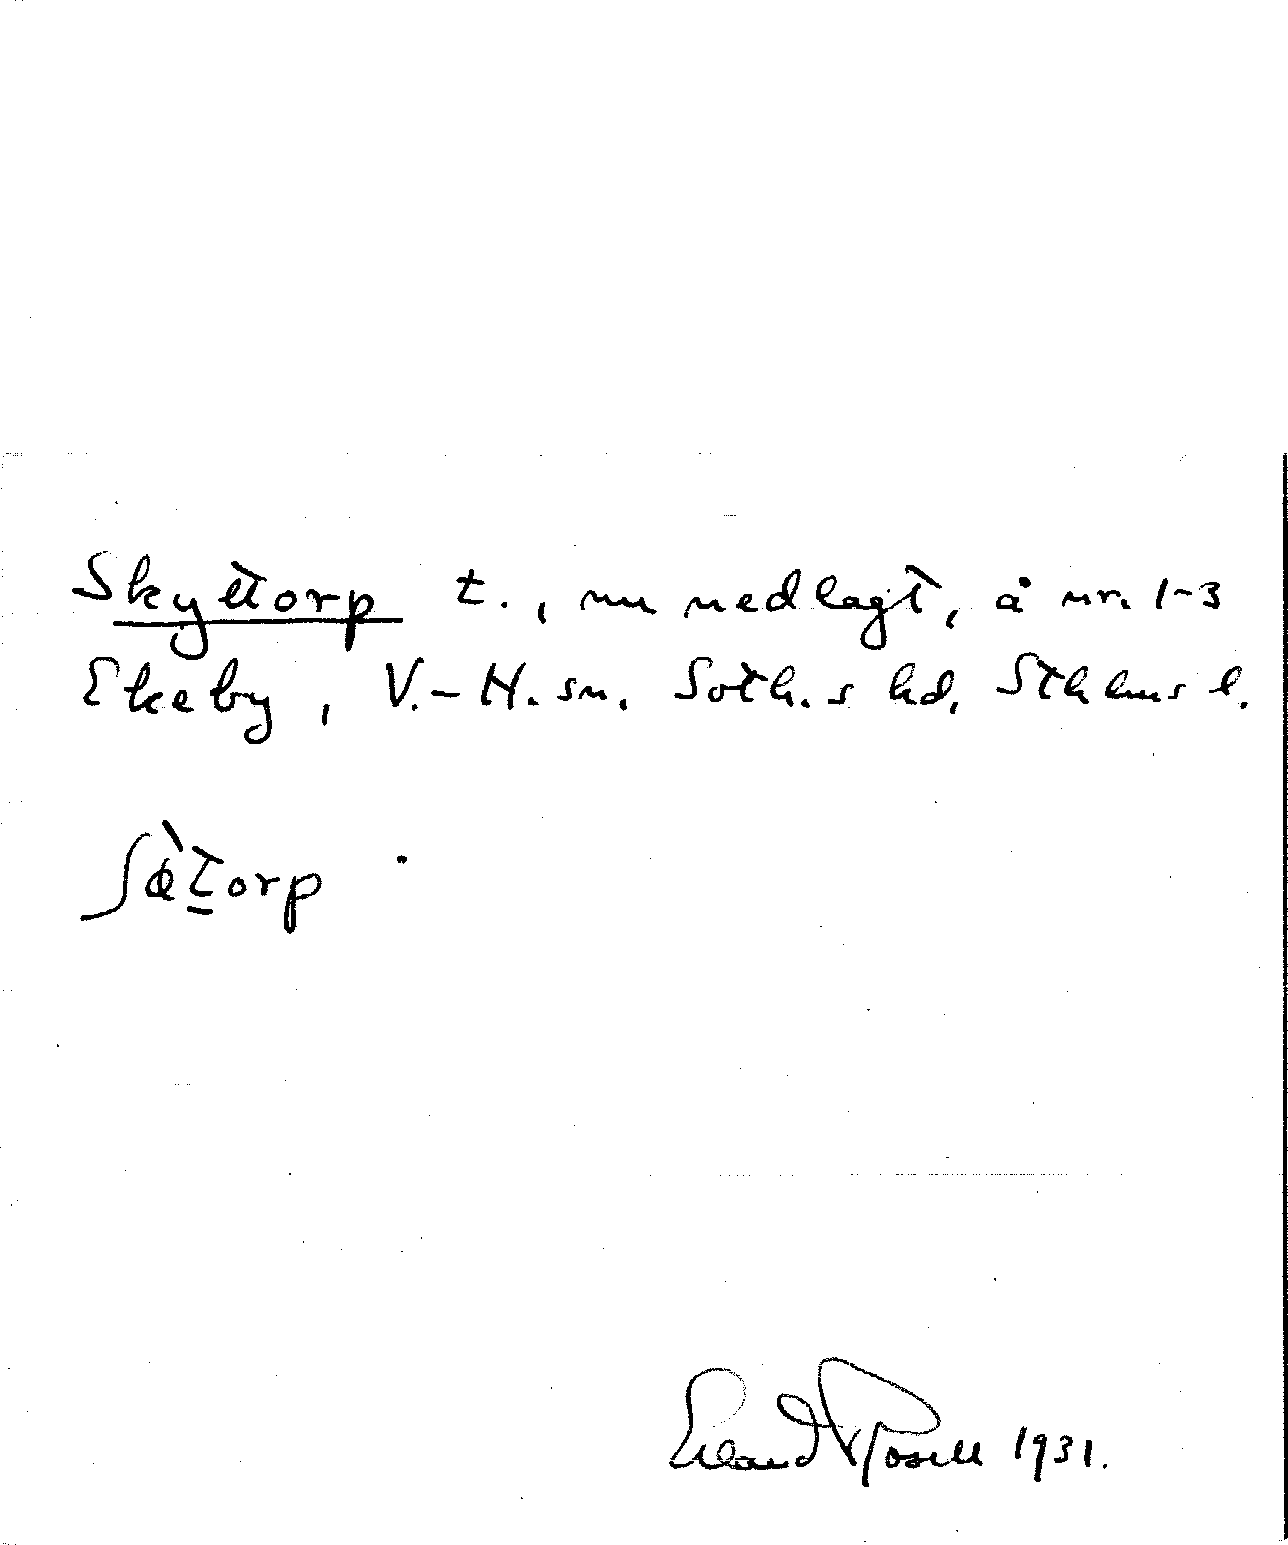 Skyttorp t., nu nedlagt, å nr. 1-3
Ekeby, V.-H. sn. Soth.s hd, Sthlms l.
torp
Erland Rosell 1931.